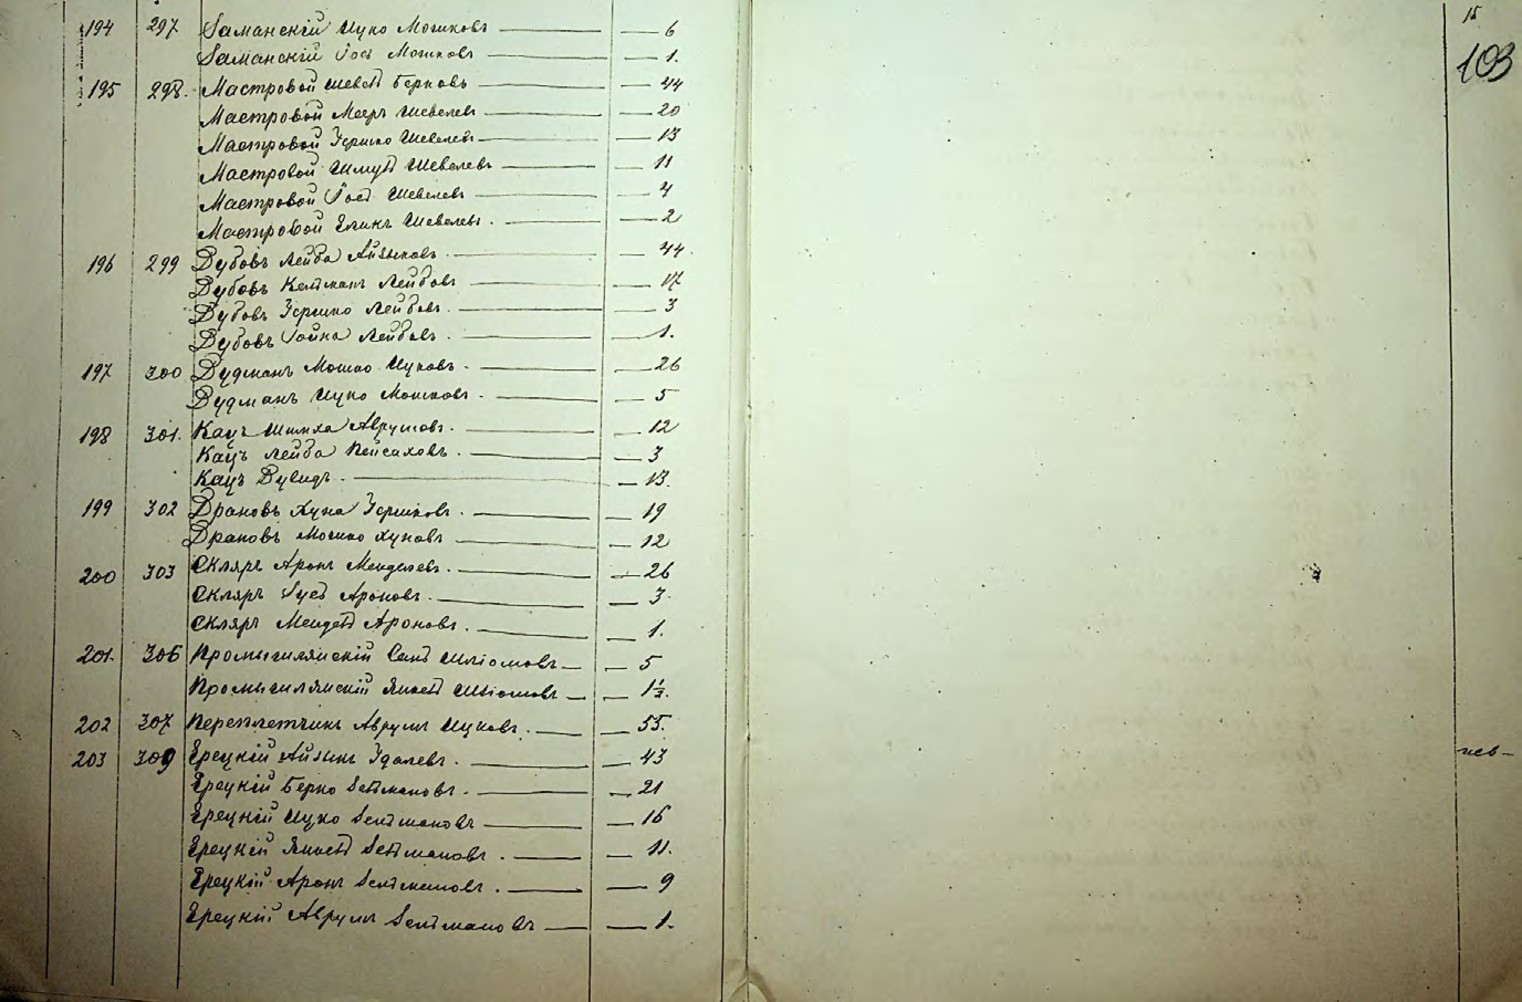 15
103
194 297 Заманскій Ицко Мошковъ — 6
Заманскій Іось Мошковъ — 1.
195 298. Мастровой Шевель Берковъ — 44
Мастровой Мееръ Шевелевъ — 20
Мастровой Гершко Шевелевъ — 13
Мастровой Шмуль Шевелевъ — 11
Мастровой Іось Шевелевъ — 4
Мастровой Шевелевъ. — 2
196 299 Дубовъ Лейба Айзиковъ. — 44.
Дубовъ Кельманъ Лейбовъ — 17
Дубовъ Гершко Лейбовъ. — 3
Дубовъ Іойна Лейбовъ. — 1.
197 300 Дудманъ Мошко Ицковъ. — 26
Дудманъ Ицко Мошковъ. — 5
198 301. Кацъ Шимха Аврумовъ. — 12
Кацъ Лейба Пейсаховъ. — 3
Кацъ Дувидъ. — 13.
199 302 Драновъ Хуна Гершковъ. — 19
Драновъ Мошко Хуновъ — 12
200 303 Скляръ Аронъ Менделевъ. — 26
Скляръ Зусь Ароновъ. — 3
Скляръ Мендель Ароновъ. — 1.
201. 306 Промыслянскій Шліомовъ — 5
Промыслянскій Янкель Шліомовъ — 1½.
202 307 Переплетчикъ Аврумъ Ицковъ. — 55.
203 309 Ерецкій Айзикъ Удалевъ. — 43
Ерецкій Берко Зельмановъ. — 21
Ерецкій Ицко Зельмановъ — 16
Ерецкій Янкель Зельмановъ. — 11.
Ерецкій Аронъ Зельмановъ. — 9
Ерецкій Аврумъ Зельмановъ — 1.